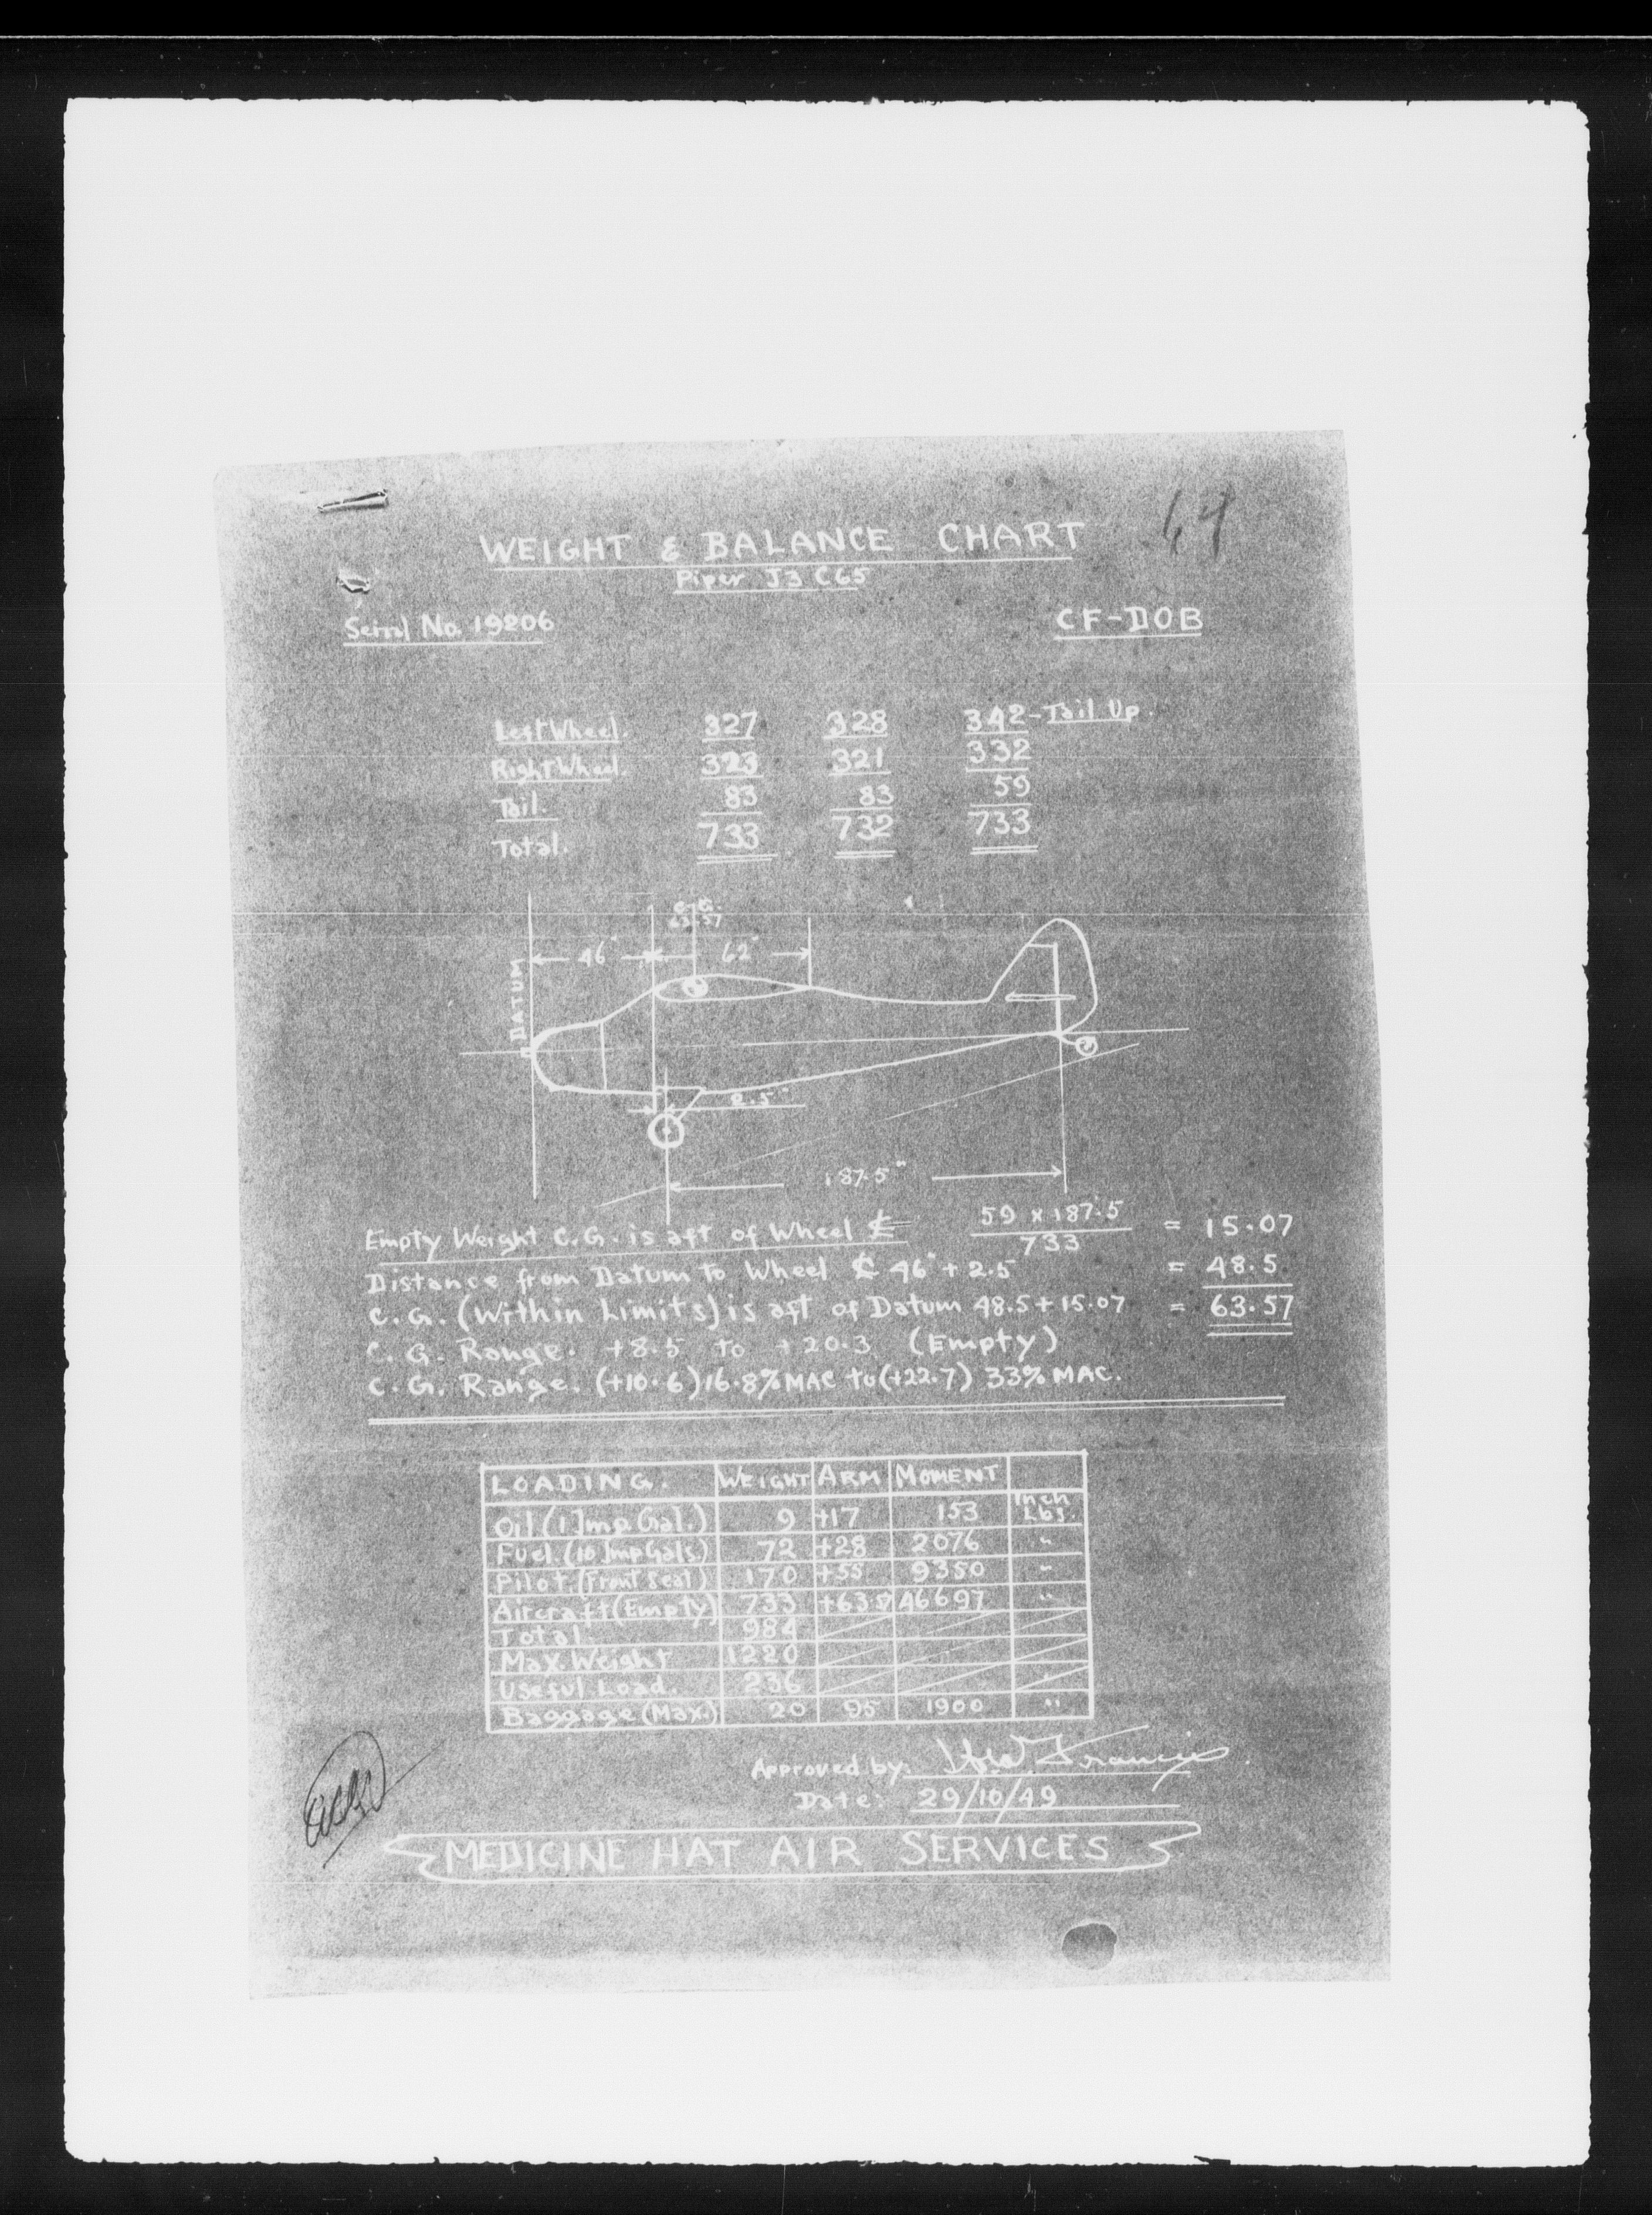 64
WEIGHT & BALANCE CHART
Piper J3 C65
Serial No. 19206 CF-DOB
Left Wheel. 327 328 342 - Tail Up.
Right Wheel. 323 321 332
Tail. 83 83 59
Total. 733 732 733
C.G.
63.57
46" 62"
DATUM
2.5"
187.5"
Empty Weight C.G. is aft of Wheel ℄ 59 x 187.5 / 733 = 15.07
Distance from Datum to Wheel ℄ 46" + 2.5" = 48.5
C.G. (Within Limits) is aft of Datum 48.5 + 15.07 = 63.57
C.G. Range. +8.5 to +20.3 (Empty)
C.G. Range. (+10.6) 16.8% MAC to (+22.7) 33% MAC.
LOADING. WEIGHT ARM MOMENT
Oil (1 Imp. Gal.) 9 +17 153 Inch Lbs.
Fuel. (10 Imp Gals.) 72 +28 2076 "
Pilot. (Front Seat) 170 +55 9350 "
Aircraft (Empty) 733 +63.57 46697 "
Total. 984
Max. Weight 1220
Useful Load. 236
Baggage (Max.) 20 95 1900 "
Approved by: Francis
Date: 29/10/49
MEDICINE HAT AIR SERVICES